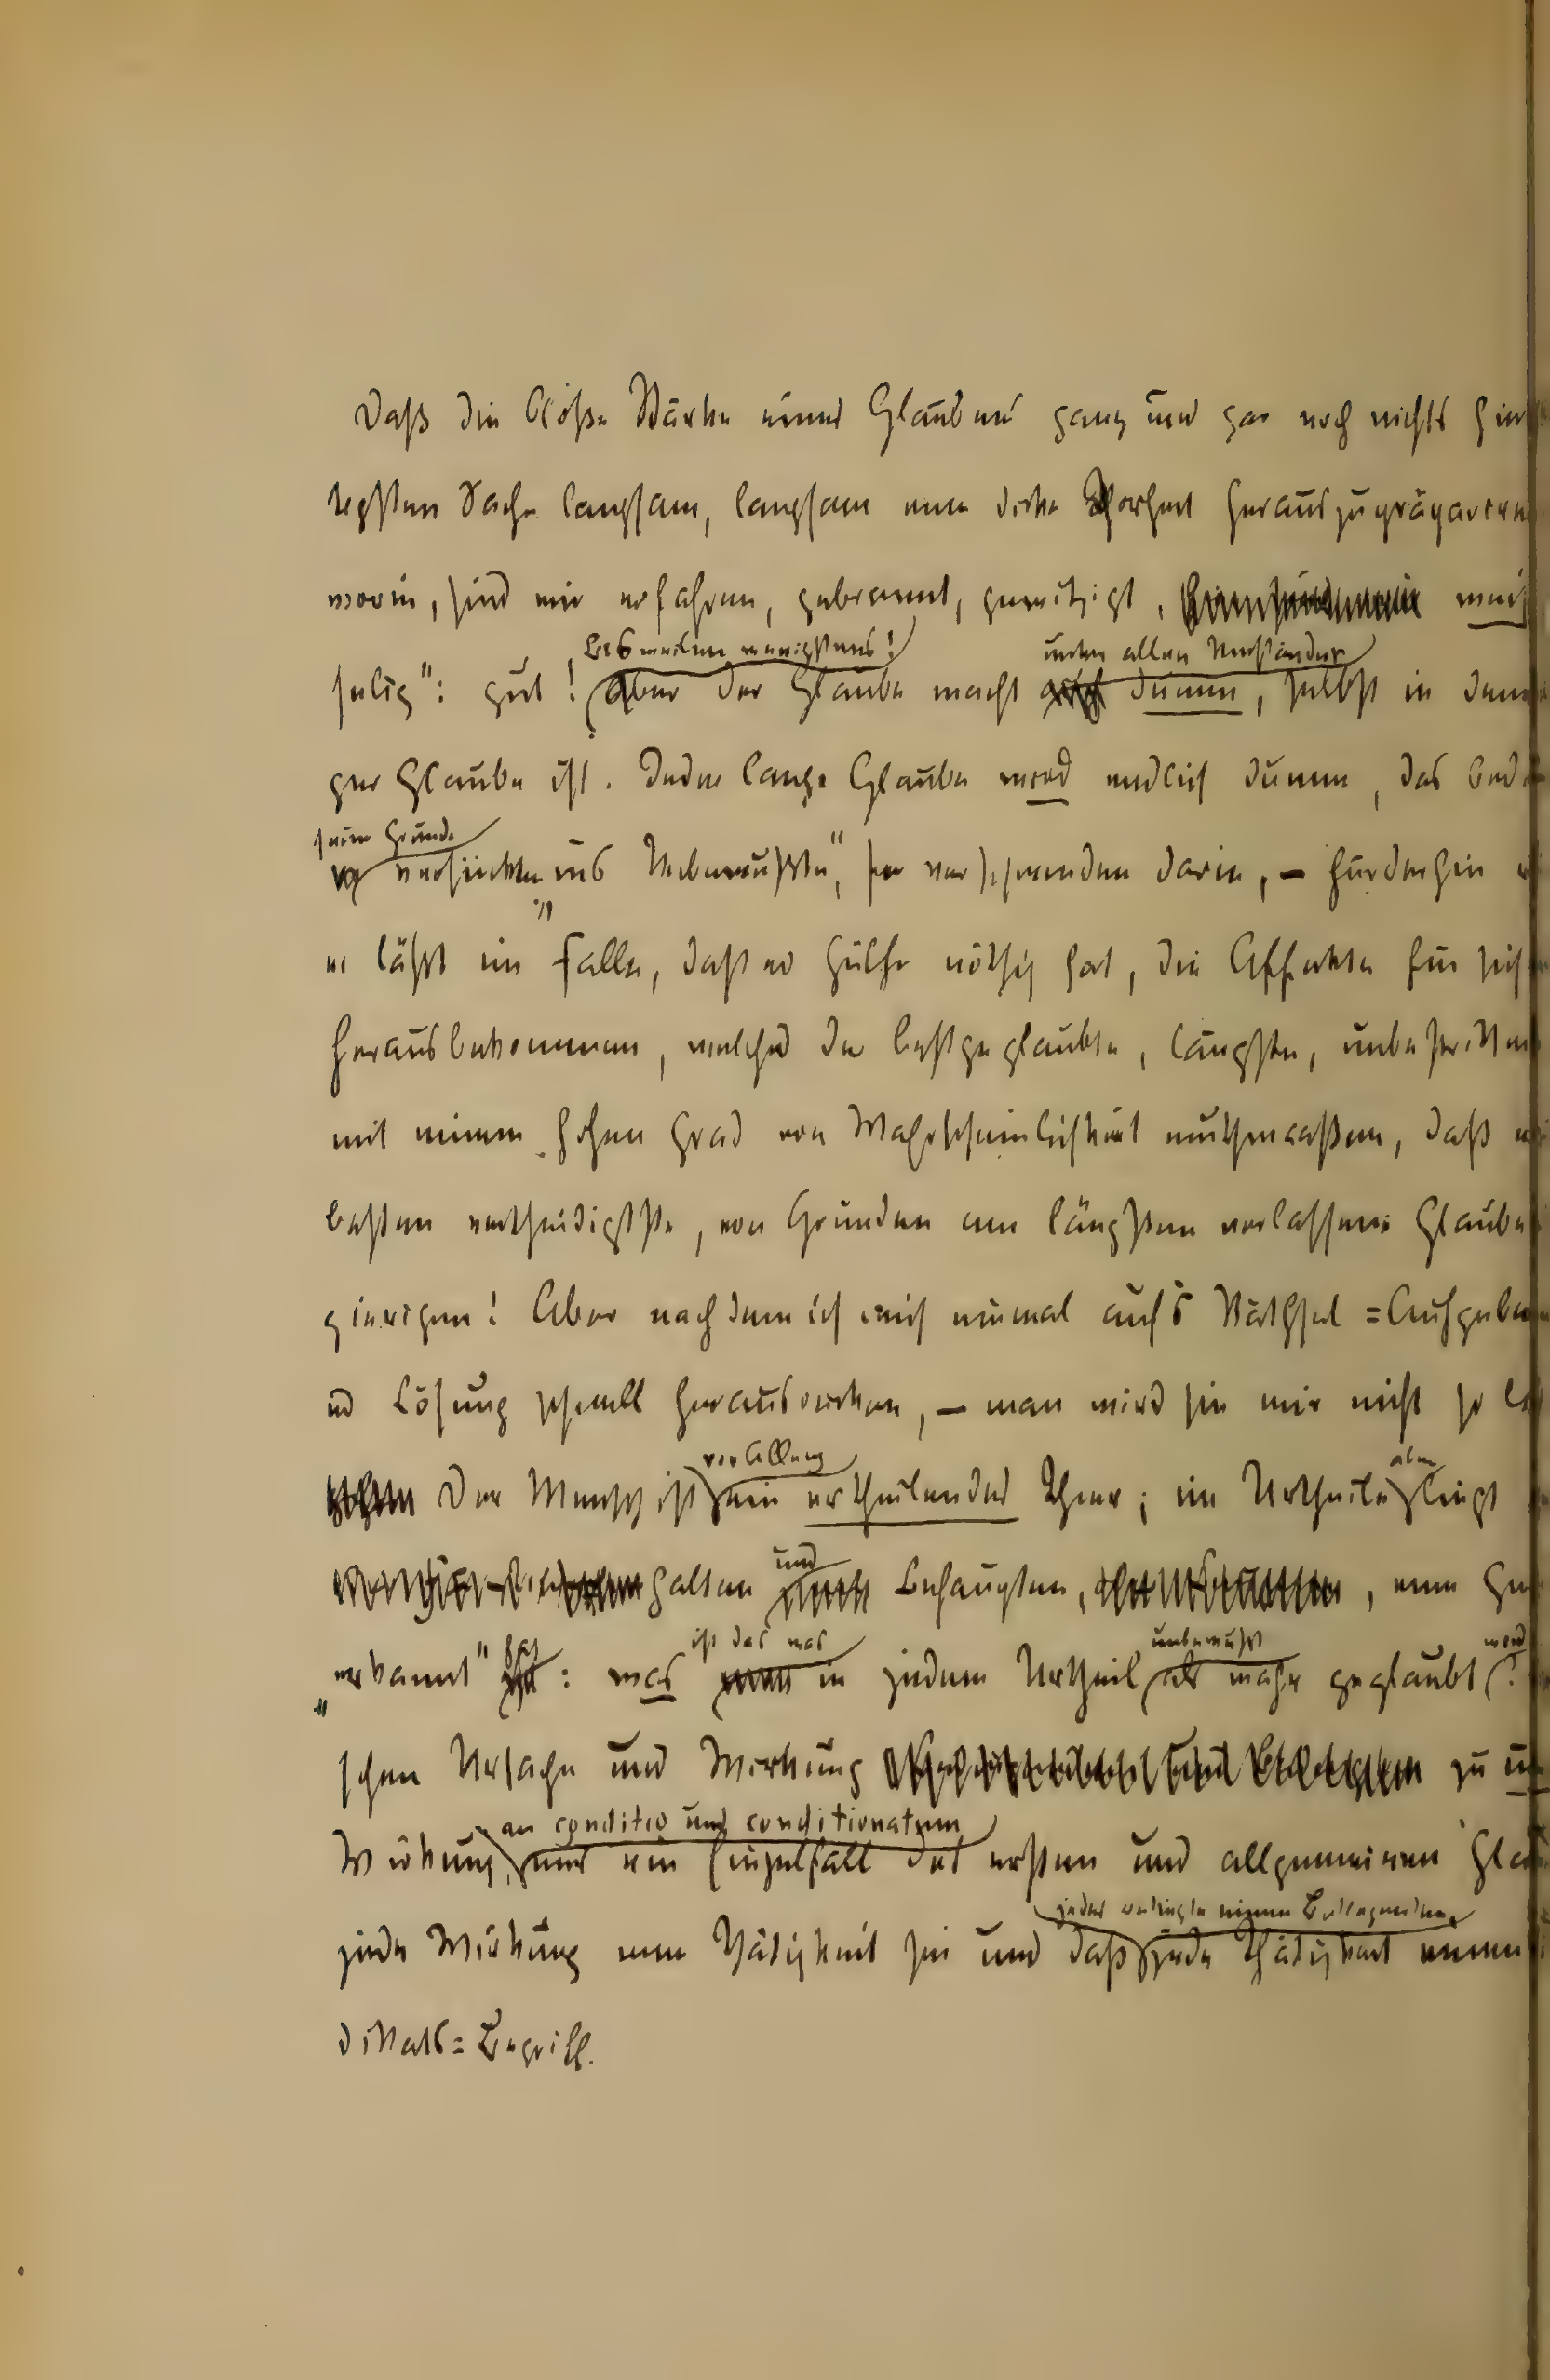 Daß die bloße Stärke eines Glaubens ganz und gar noch nichts hin
tigsten Sache langsam, langsam eine dicke Thorheit herauszupräpariren
worin, sind wir erfahren, gebrannt, gewitzigt,
selig": gut! bisweilen wenigstens! Aber der Glaube macht unter allen Umständen dumm, selbst in dem
ger Glaube ist. Jeder lange Glaube wird endlich dumm, das bed
seine Gründe versinken „ins Unbewußte", sie verschwinden darin, — fürderhin
er läßt im Falle, daß er Hülfe nöthig hat, die Affekte für sich
herausbekommen, welches der bestgeglaubte, längste, unbestritten
mit einem hohen Grad von Wahrscheinlichkeit muthmaaßen, daß
besten vertheidigtste, von Gründen am längsten verlassene Glaube
gierigen! Aber nachdem ich mich einmal auf's Räthsel=Aufgeben
Lösung schnell herausrücken, — man wird sie mir nicht so le
Der Mensch ist vor Allem ein urtheilendes Thier; im Urtheile aber liegt
halten und Behaupten, eine Ge
„erkannt" hat: was ist das was in jedem Urtheil unbewußt als wahr geglaubt wird?
schen Ursache und Wirkung zu
Wirkung an conditio und conditionatum nur ein Einzelfall des ersten und allgemeinen Glau
jede Wirkung eine Thätigkeit sei und daß jedes Bedingte einen Bedingenden, jede Thätigkeit einen
dikats=Begriff.